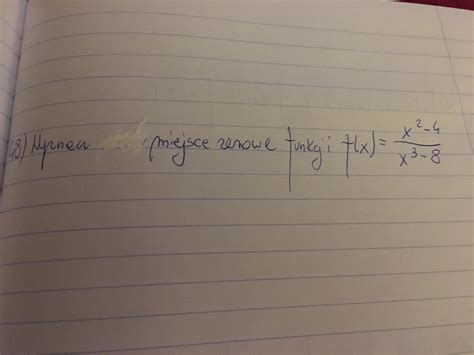 48) Wyznacz miejsce zerowe funkcji f(x) = \frac{x^2-4}{x^3-8}